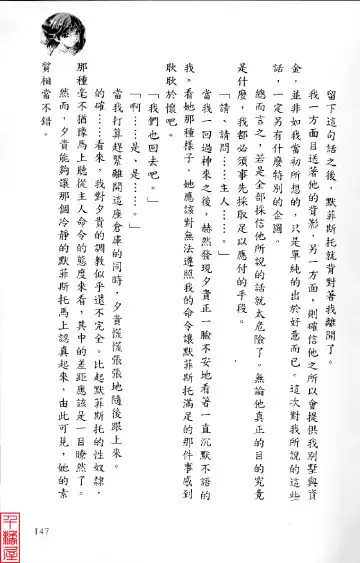 留下這句話之後，默菲斯托就背對著我離開了。
我一方面目送著他的背影，另一方面，則確信他之所以會提供我別墅與資
金，並非如我當初所想的，只是單純的出於好意而已。這次對我所說的這些
話，一定另有什麼特別的企圖。
總而言之，若是全部採信他所說的話就太危險了。無論他真正的目的究竟
是什麼，我都必須事先採取足以應付的手段。
「請、請問……主人……。」
當我一回過神來之後，赫然發現夕貴正一臉不安地看著一直沉默不語的
我。看她那種樣子，她應該對無法遵照我的命令讓默菲斯托滿足的那件事感到
耿耿於懷吧。
「我們也回去吧。」
「啊……是、是……。」
當我打算趕緊離開這座倉庫的同時，夕貴慌慌張張地隨後跟上來。
的確……看來，我對夕貴的調教似乎還不完全。比起默菲斯托的性奴隸，
那種毫不猶豫馬上聽從主人命令的態度來看，其中的差距應該是一目瞭然了。
然而，夕貴能夠讓那個冷靜的默菲斯托馬上認真起來，由此可見，她的素
質相當不錯。
147